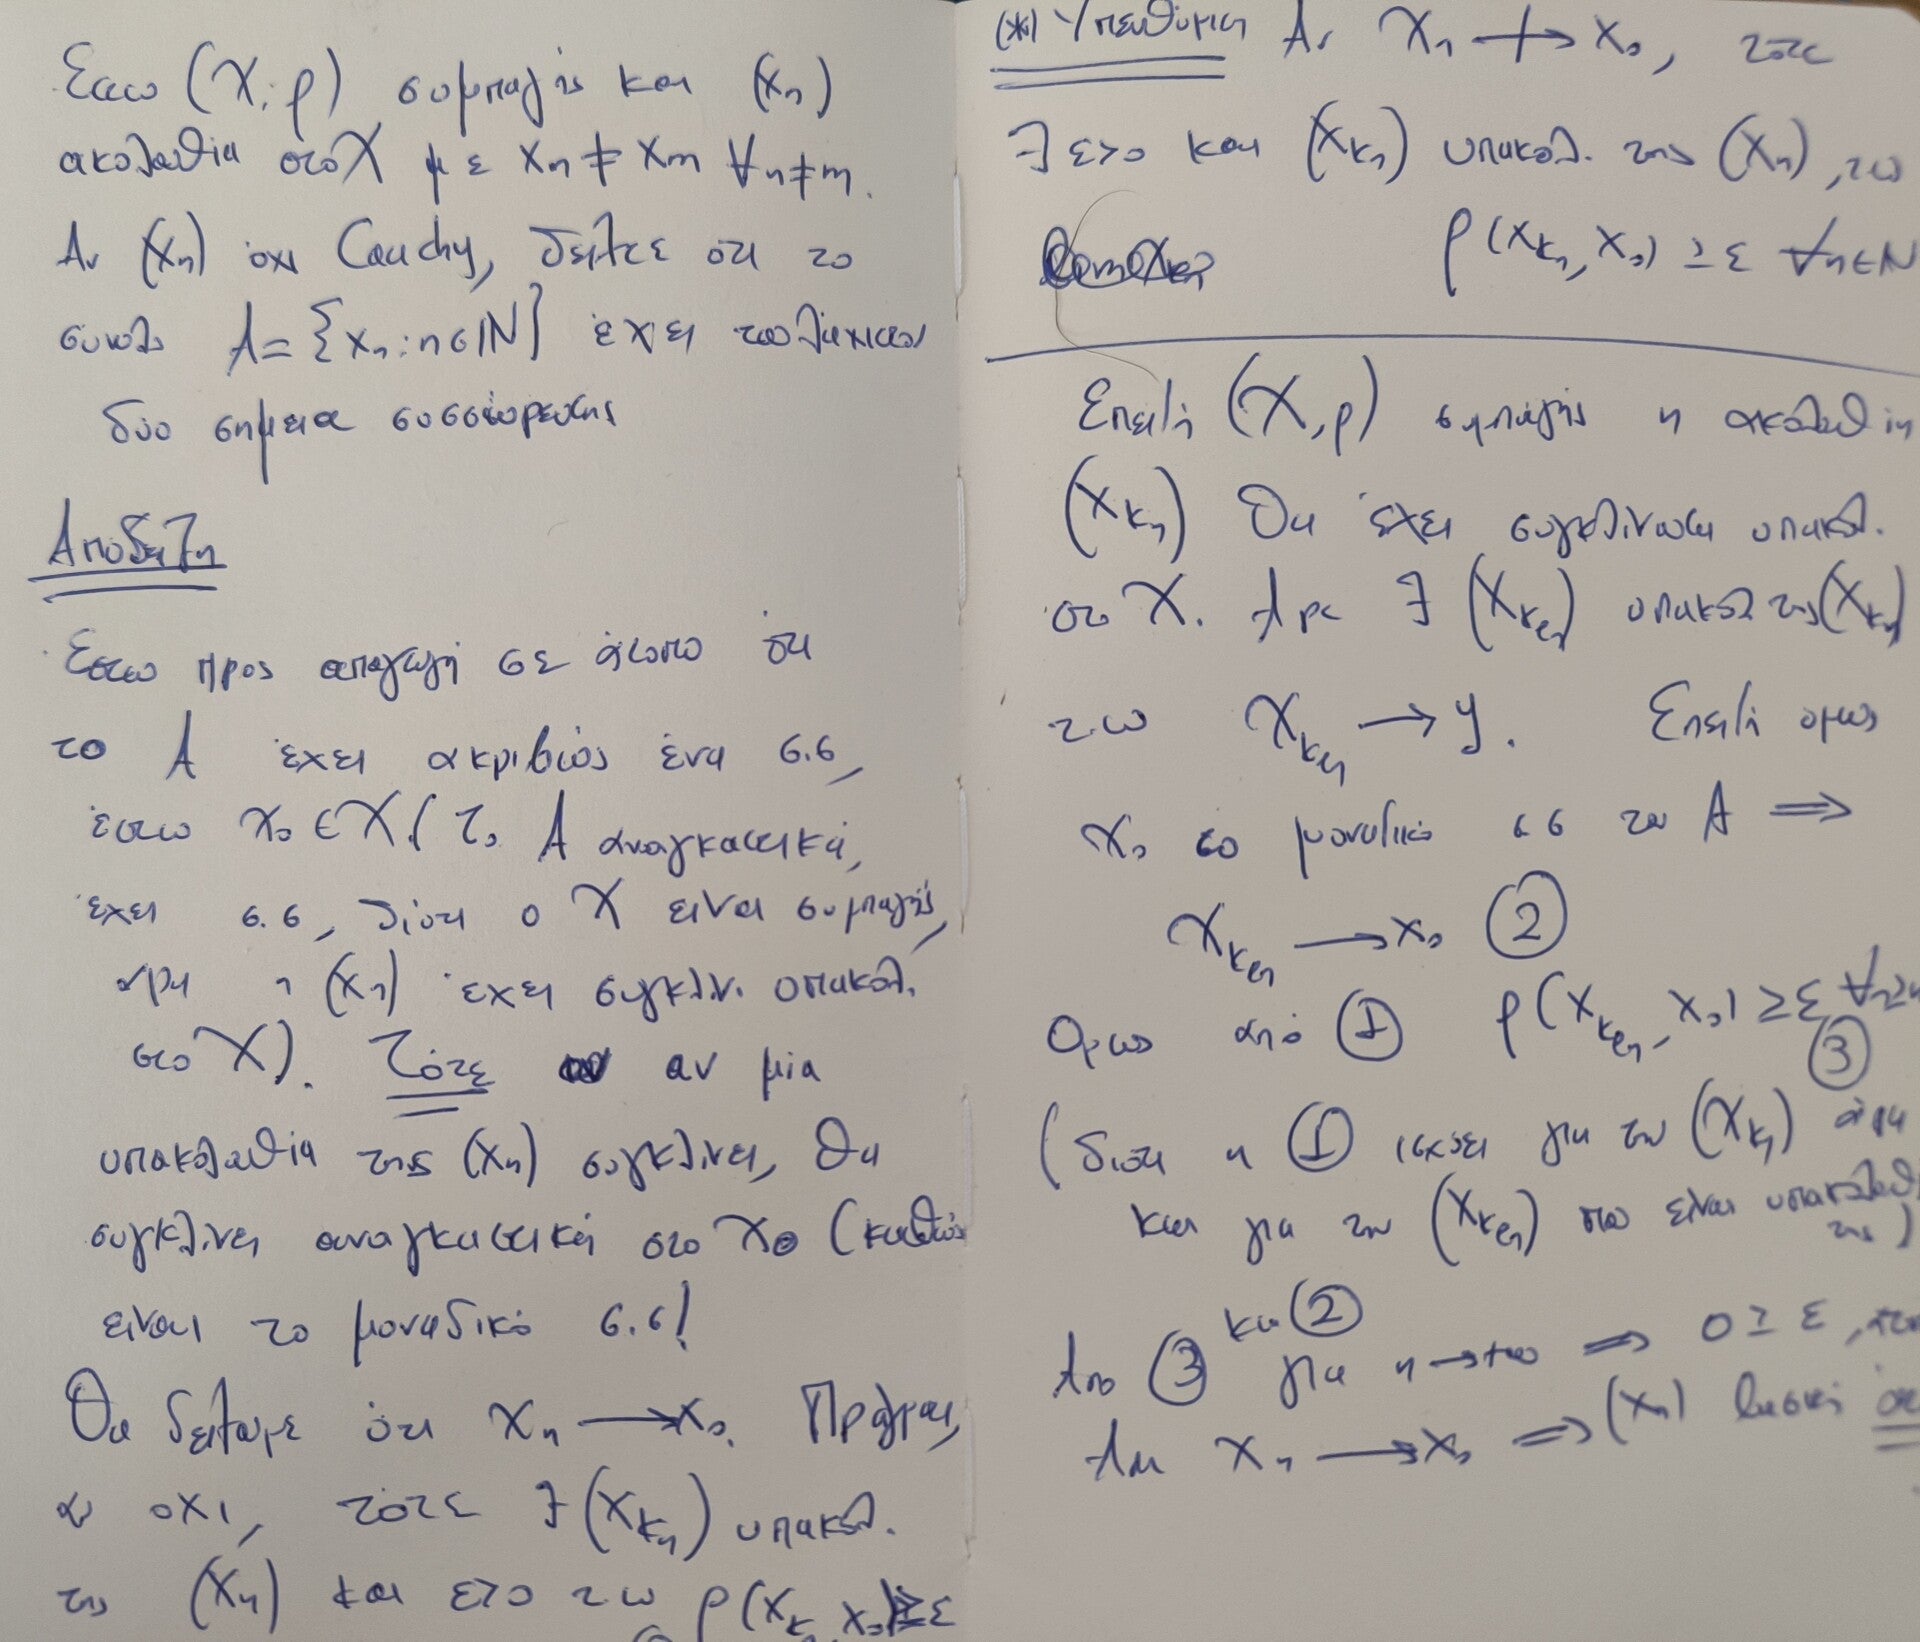 Έστω (X, ρ) συμπαγής και (xₙ)
ακολουθία στο X με xₙ ≠ xₘ ∀n≠m.
Αν (xₙ) όχι Cauchy, δείξτε ότι το
σύνολο A = {xₙ : n∈ℕ} έχει τουλάχιστον
δύο σημεια συσσώρευσης
Αποδειξη
Εστω προς απαγωγή σε άτοπο ότι
το A έχει ακριβώς ένα σ.σ,
έστω x₀ ∈ X. (το A αναγκαστικά,
έχει σ.σ, διότι ο X είναι συμπαγής,
άρα η (xₙ) έχει συγκλιν. υπακολ.
στο X). Τότε αν μία
υπακολουθία της (xₙ) συγκλίνει, θα
συγκλίνει αναγκαστικά στο x₀ (καθώς
είναι το μοναδικό σ.σ!
Θα δείξουμε ότι xₙ ⟶ x₀. Πράγματι,
αν οχι, τότε ∃ (x_{kₙ}) υπακολ.
της (xₙ) και ε>0 τ.ω ρ(x_{kₙ}, x₀) ≥ ε
(*) Υπενθύμιση Αν xₙ ↛ x₀, τότε
∃ ε>0 και (x_{kₙ}) υπακολ. της (xₙ), τ.ω
ρ(x_{kₙ}, x₀) ≥ ε ∀n∈ℕ
Επειδή (X, ρ) συμπαγής η ακολουθία
(x_{kₙ}) θα έχει συγκλίνουσα υπακολ.
στο X. Αρα ∃ (x_{k_{ℓₙ}}) υπακολ της (x_{kₙ})
τ.ω x_{k_{ℓₙ}} ⟶ y. Επειδή ομως
x₀ το μοναδικό σσ του A ⟹
x_{k_{ℓₙ}} ⟶ x₀ ②
Ομως από ① ρ(x_{k_{ℓₙ}}, x₀) ≥ ε ③
(διότι η ① ισχύει για την (x_{kₙ}) άρα
και για την (x_{k_{ℓₙ}}) που είναι υπακολουθ
της)
Απο ③ και ② για n→+∞ ⟹ 0 ≥ ε,
Αρα xₙ ⟶ x₀ ⟹ (xₙ) βασική